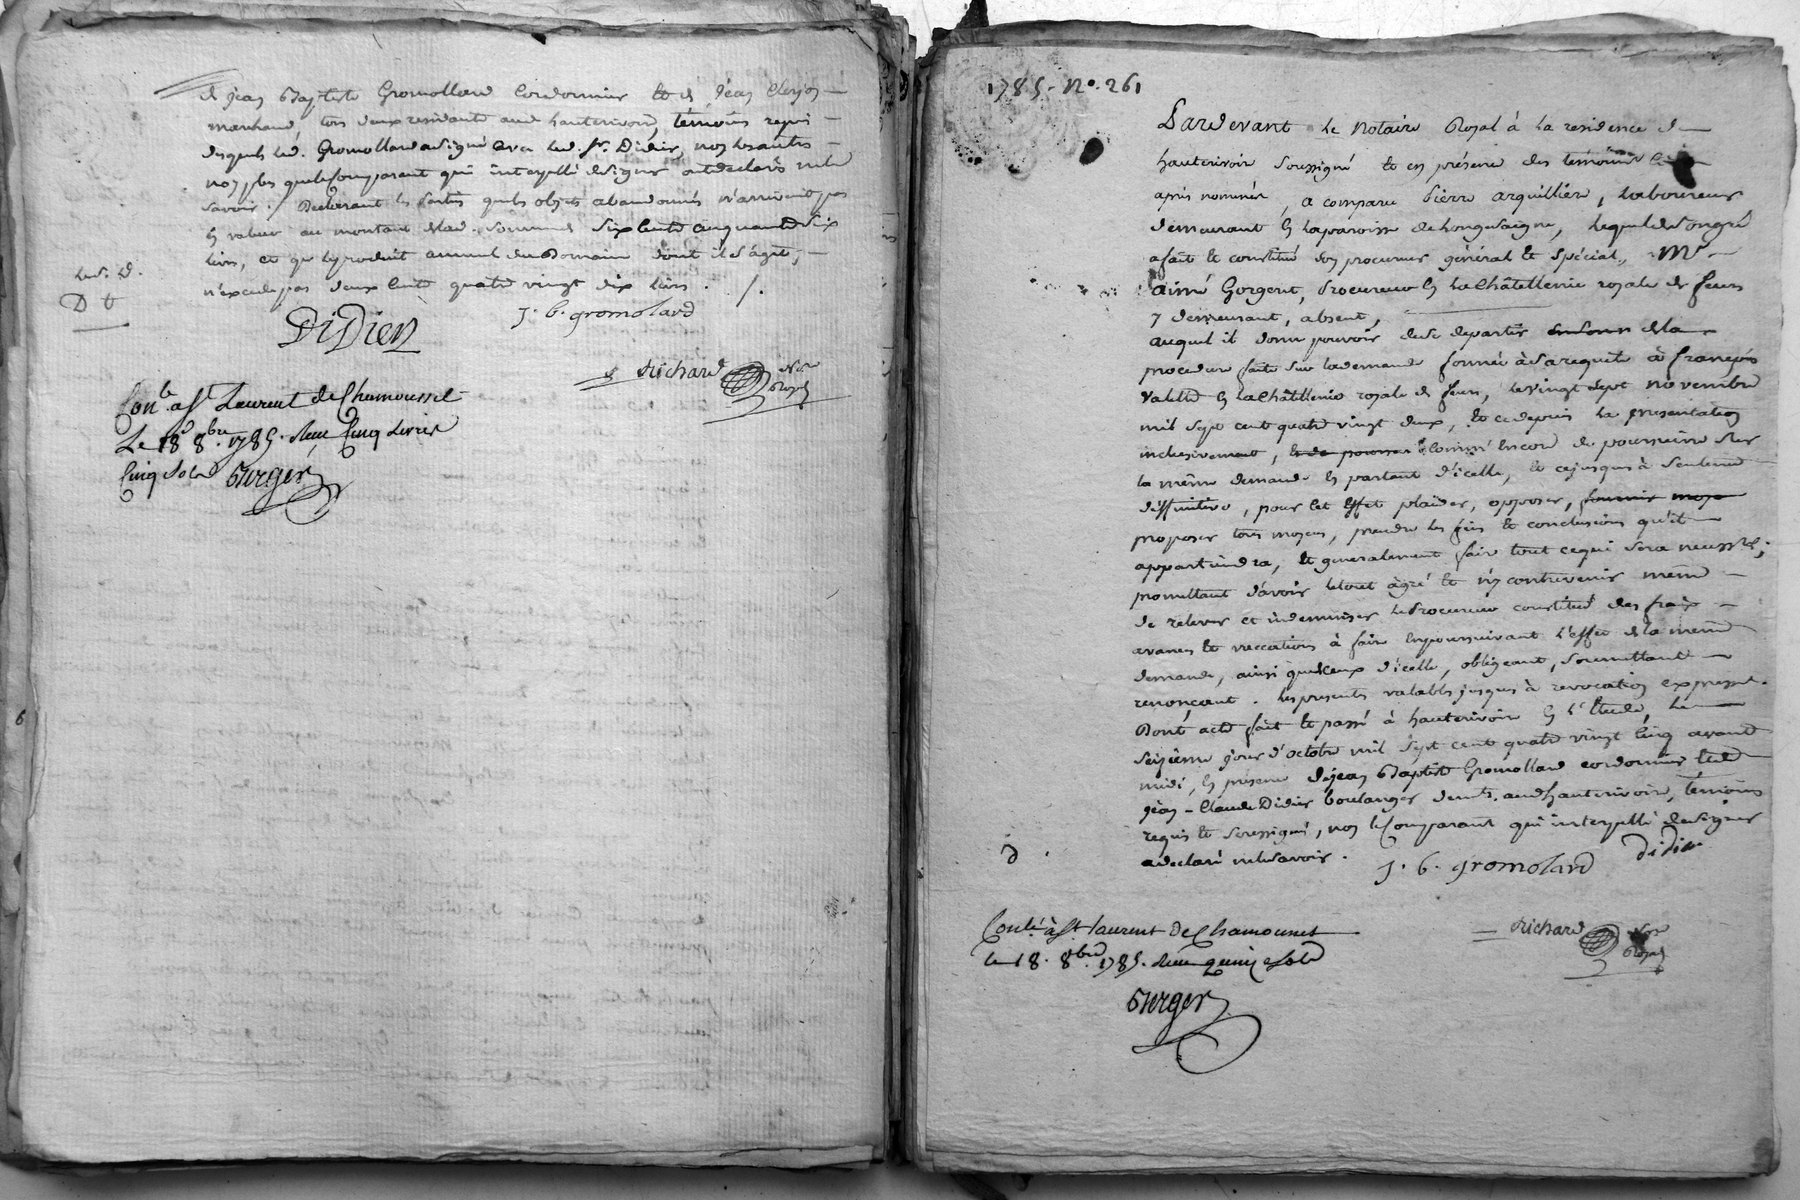 de jean Baptiste Gromollard Cordonnier et de jean Clerjon
marchand, tous deux residants aud hauterivoire, témoins requis
desquels led. Gromollard a signé avec led. Sr. Didier, non les autres
non plus que le Comparant qui interpellé de signer ont declaré ne le
savoir. / Declarant les parties que les objets abandonnés n'arrivent pas
en valeur au montant de lad. Somme de Six Cents cinquante Six
livres, et que le produit annuel du Domaine dont il s'agit,
n'excede pas deux Cents quatre vingt dix livres . /.
D t
J. b. gromolard
DiDieR
Richard Nre
Royal
Con.le a St Laurent de Chamousset
Le 18 8bre. 1785. Reçu Cinq Livres
Cinq Sols Berger
1785. No. 261
Pardevant le Notaire Royal à la residence de
hauterivoire Soussigné et en présence des témoins
après nommés, a comparu Pierre arquillière, Laboureur
demeurant en la paroisse de Longesaigne, Lequel de Son gré
a fait et constitué son procureur général et spécial, Me
aimé Gorgeret, Procureur en la Châtellenie royale de feurs
y demeurant, absent,
auquel il donne pouvoir de se departir de la
procedure faite sur la demande formée à sa requete à françois
Valette en la Châtellenie royale de feurs, le vingt Sept novembre
mil Sept cent quatre vingt deux, et ce depuis la presentation
inclusivement, et de poursui Comme Encore de poursuivre Sur
la même demande en partant d'icelle, et ce jusques à Sentence
déffinitive, pour Cet Effet plaider, opposer, fournir moye
proposer tous moyens, prendre les fins et conclusions qu'il
appartiendra, et generalement faire tout ce qui Sera necessre;
promettant d'avoir le tout àgré et n'y contrevenir même
de relever et indemniser le Procureur constitué des fraix
avances et vaccations à faire En poursuivant l'effet de la même
demande, ainsi que de Ceux d'icelle, obligeant, Soumettant
renonçant. les presentes valables jusques à revocation expresse.
Dont acte fait et passé à hauterivoire En l'Etude, le
Seizieme jour d'octobre mil Sept cent quatre vingt Cinq avant
midi, En presence de jean Baptiste Gromollard cordonnier et de
jean-Claude Didier boulanger demts. aud hauterivoire, témoins
requis et Soussignés, non le Comparant qui interpellé de Signer
a declaré ne le Savoir.
J. b. gromolard Didier
Conle. à St Laurent de Chamousset
Le 18. 8bre. 1785. Reçu quinze Sols
Richard Nre
Royal
Berger